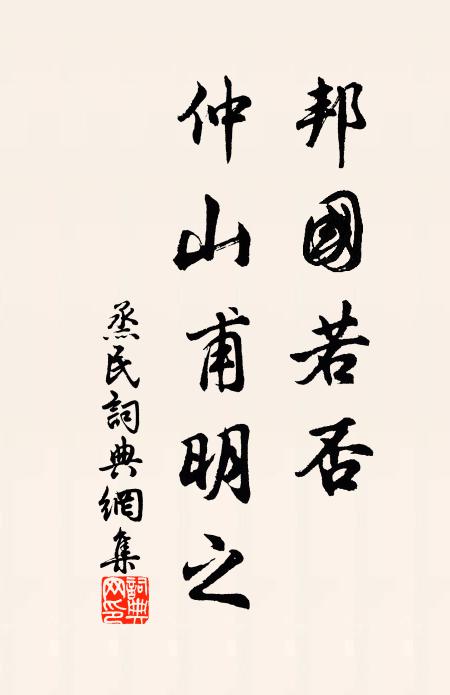 邦國若否
仲山甫明之
烝民詞典網集
詞典网印